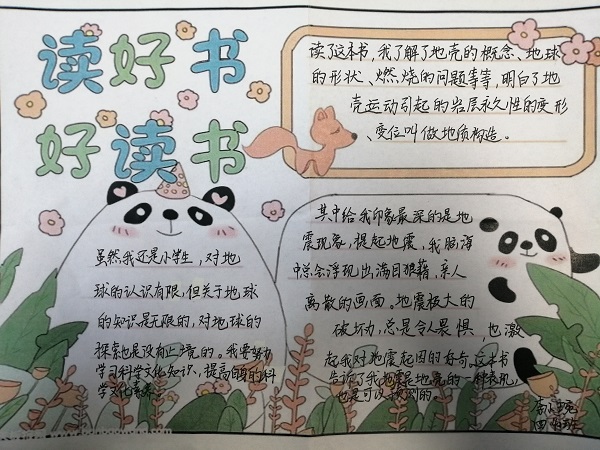 读好书
好读书
读了这本书，我了解了地壳的概念、地球
的形状、燃烧的问题等等，明白了地
壳运动引起的岩层永久性的变形
、变位叫做地质构造。
虽然我还是小学生，对地
球的认识有限，但关于地球
的知识是无限的，对地球的
探索也是没有止境的。我要努力
学习科学文化知识，提高自身的科
学文化素养。
其中给我印象最深的是地
震现象，提起地震，我脑海
中总会浮现出满目狼藉，亲人
离散的画面。地震极大的
破坏力，总是令人畏惧，也激
起我对地震起因的好奇。这本书
告诉了我地震是地壳的一种表现，
也是可以预测的。